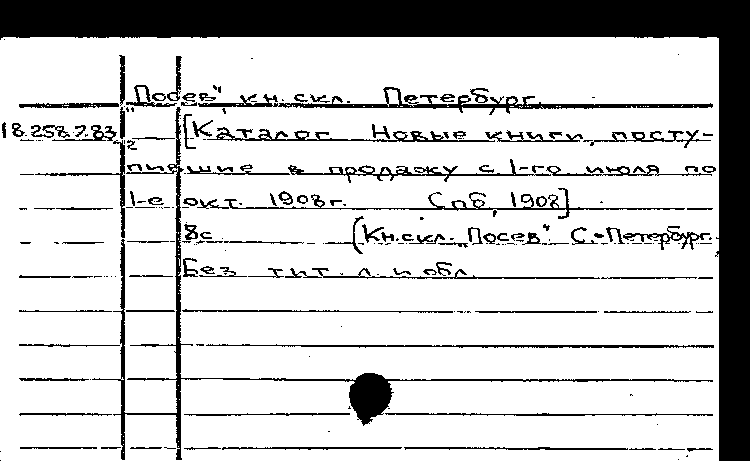 "Посев", кн. скл. Петербург.
18.258.7.83 [Каталог Новые книги, посту-
2
пившие в продажу с 1-го июля по
1-е окт. 1908 г. Спб, 1908]
8с (Кн. скл. "Посев". С.-Петербург.
Без тит. л. и обл.